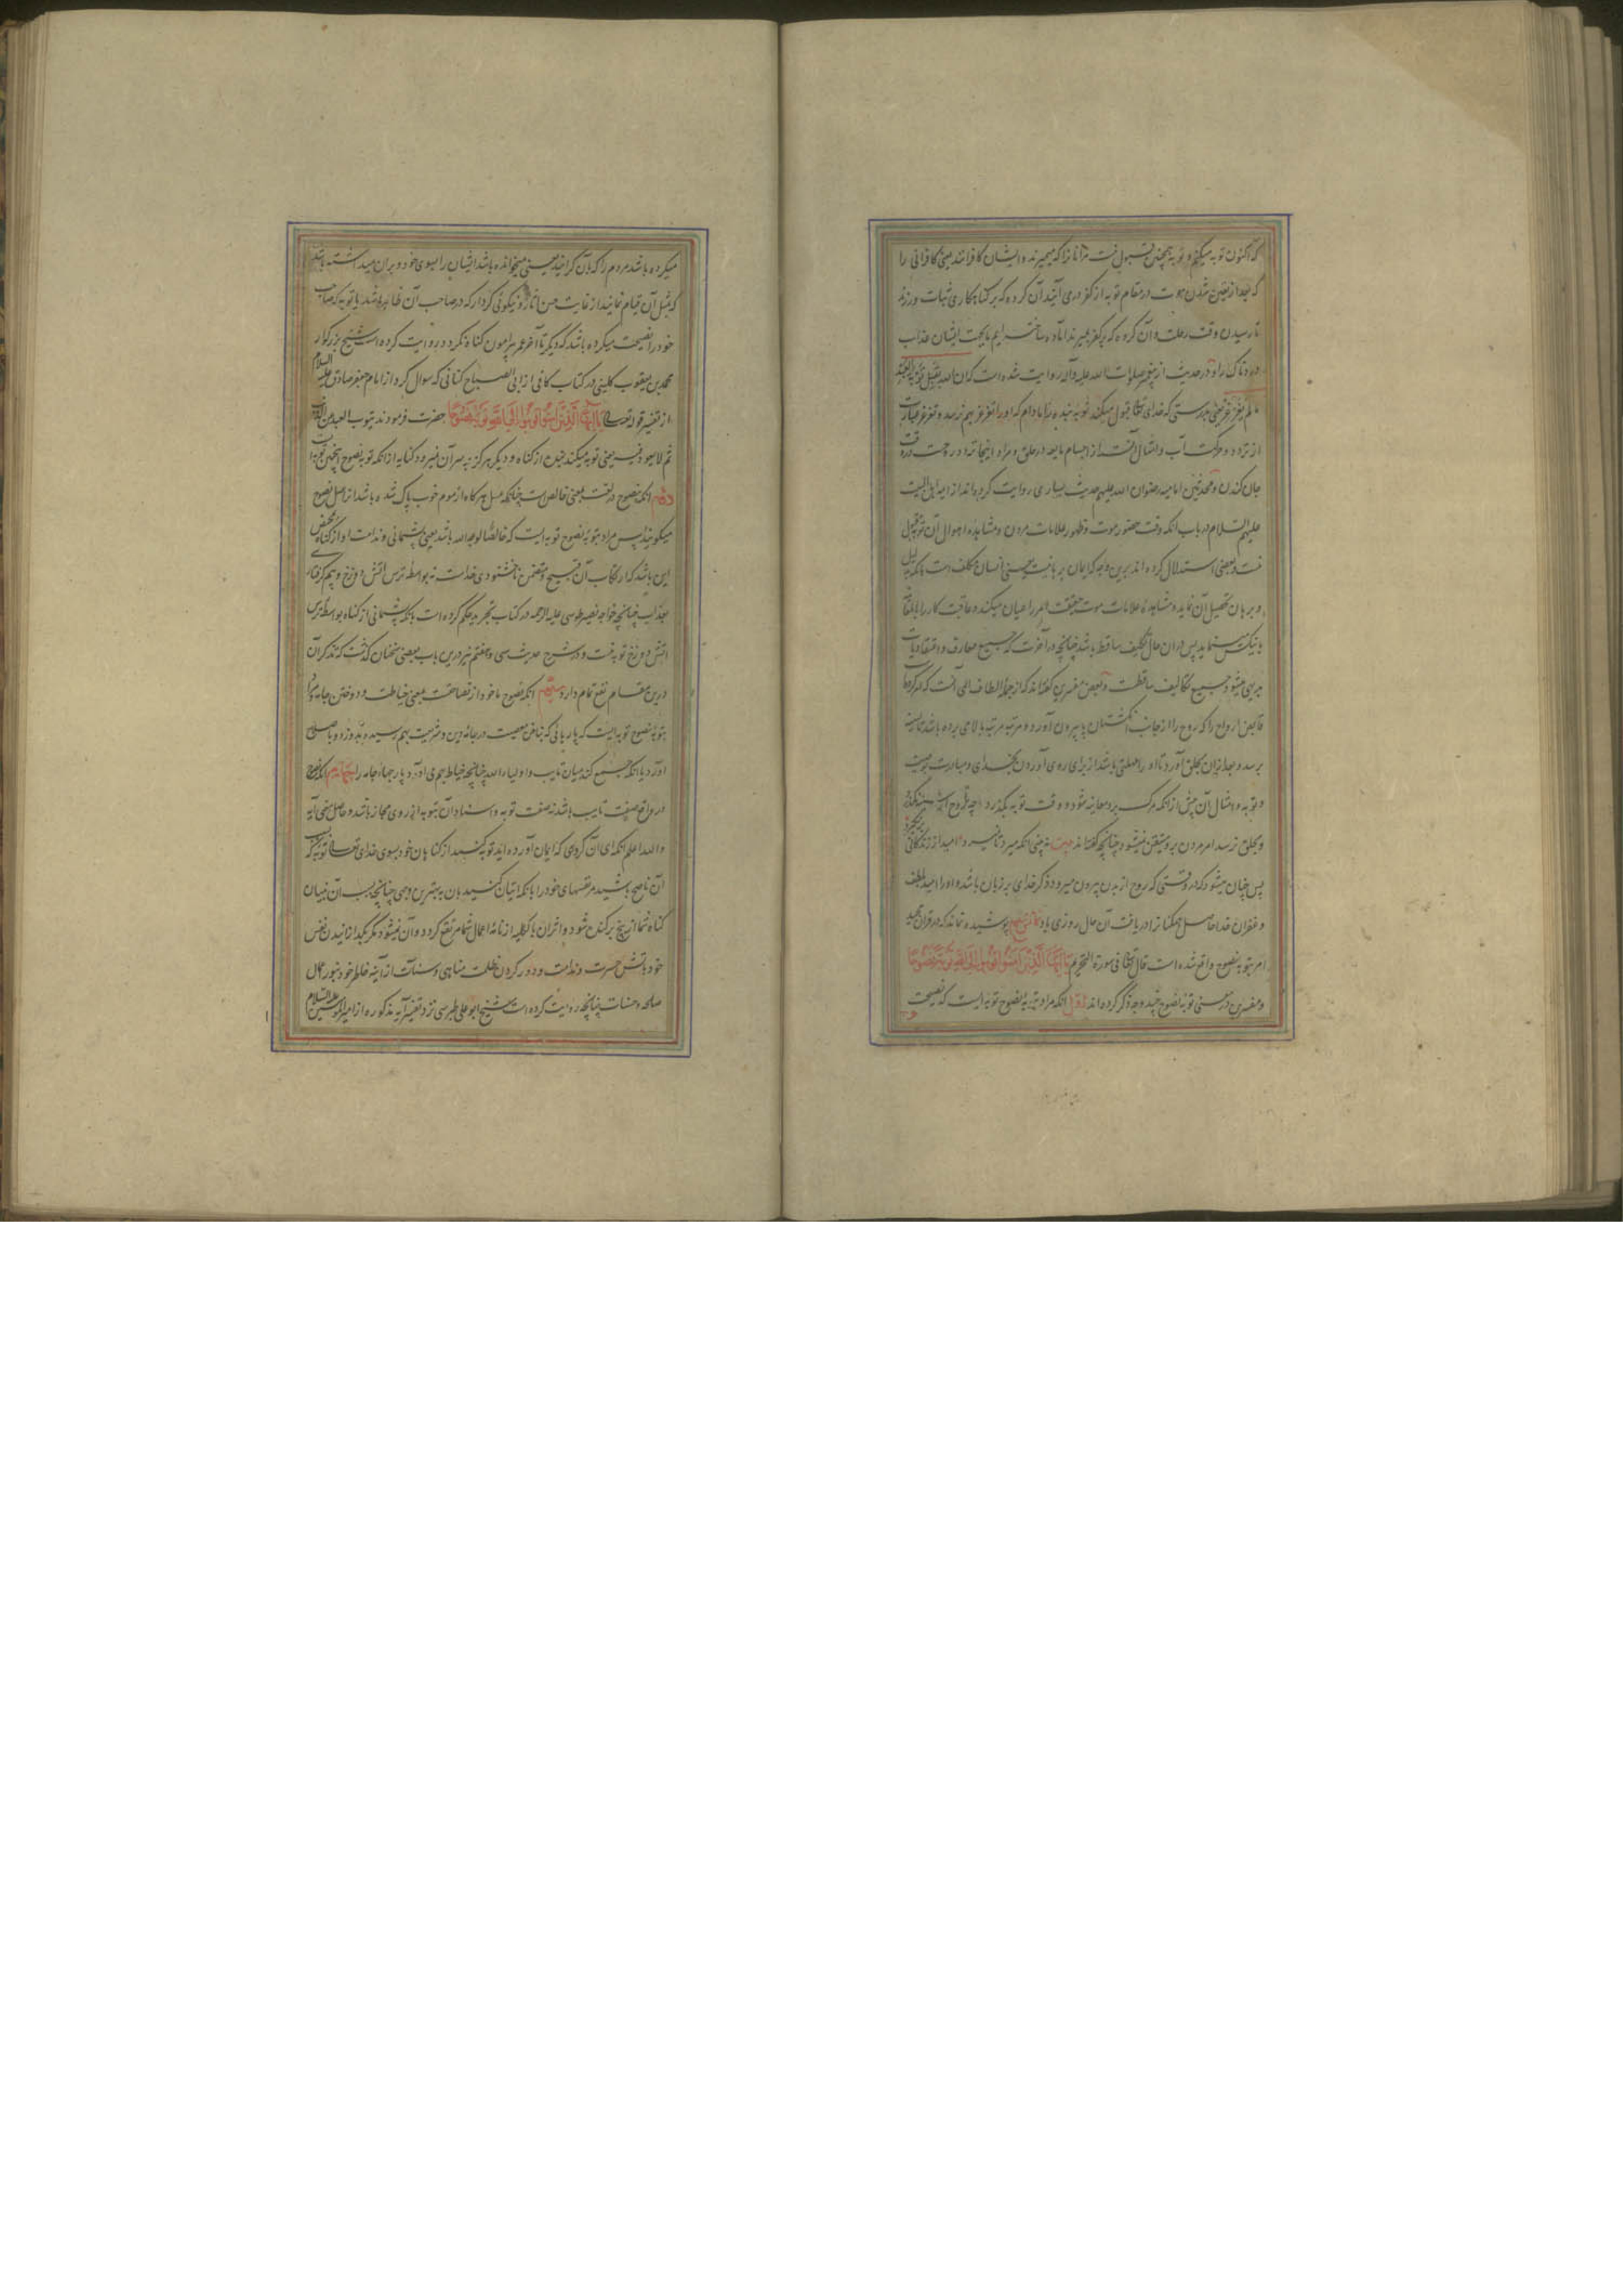 که اکنون توبه میکنم و توبه همچنین مقبول نیست مر آنانرا که میمیرند و ایشان کافرانند یعنی کافرانی را
که بعد از یقین شدن موت در مقام توبه از کفر درمی آیند آن گروه که بر گناهکاری ثبات ورزند
تا رسیدن وقت رحلت و آن گروه که بر کفر بمیرند آماده ساخته ایم بجهت ایشان عذاب
دردناک را و در حدیث از پیغمبر صلوات الله علیه و آله روایت شده است که ان الله یقبل توبة العبد
ما لم یغرغر یعنی بدرستی که خدای تعالی قبول میکند توبه بنده را مادام که او را تغرغر بهم نرسد و تغرغر عبارت
از تردد و حرکت آب و امثال آنست از اجسام مایعه در حلق و مراد اینجا تردد روح است در وقت
جان کندن و محدثین امامیه رضوان الله علیهم حدیث بسیاری روایت کرده اند از ایمه اهل البیت
علیهم السلام در باب آنکه وقت حضور موت و ظهور علامات مردن و مشاهده اهوال آن توبه مقبول
نیست و بعضی استدلال کرده اند برین وجه که ایمان برهانیست یعنی انسان مکلف است بآنکه بدلیل
و برهان تحصیل آن نماید و مشاهده علامات موت حقیقت امر را عیان میکند و عاقبت کار را
پس در آن حال تکلیف ساقط باشد چنانچه در آخرت که جمیع معارف و اعتقادیات
بدیهی میشود جمیع تکالیف ساقطست و بعضی مفسرین گفته اند که از جمله الطاف الهی آنست که امر کرده
قابض ارواح را که روح را از جانب انگشتهای پا بیرون آورد و مرتبه مرتبه بالا می برده باشد تا بسینه
برسد و بعد از آن بحلق آورد تا او را مهلتی باشد از برای روی آوردن بخدای و مبادرت بوصیت
و توبه و امثال آن پیش از آنکه مرگ برو معاینه شود و وقت توبه بگذرد چه تا روح
و بحلق نرسد امر مردن برو متیقن نمیشود چنانچه گفته اند بیت نه چنی انکه میرد تا نمیرد امید از زندگانی بر نگیرد
پس چنان میشود که در وقتی که روح از بدن بیرون میرود ذکر خدای بر زبان باشد و او را امید بلطف
و غفران خدا حاصل همگنانرا دریافت آن حال روزی باد پوشیده نماند که در قرآن مجید
امر بتوبه نصوح واقع شده است قال تعالی فی سورة التحریم یا ایها الذین آمنوا توبوا الی الله توبة نصوحا
و مفسرین در معنی توبه نصوح چند وجه ذکر کرده اند اول آنکه مراد بتوبه نصوح توبه ایست که نصیحت
میکرده باشد مردم را که بآن گرایند یعنی میخوانده باشد ایشان را بسوی خود و بر آن میداشته باشد
که بمثل آن قیام نمایند از غایت حسن آثار و نیکوئی کردار که در صاحب آن ظاهر باشد یا توبه که صاحب
خود را نصیحت میکرده باشد که دیگر تا آخر عمر پیرامون گناه نگردد و روایت کرده است شیخ بزرگوار
محمد بن یعقوب کلینی در کتاب کافی از ابی الصباح کنانی که سوال کرد از امام جعفر صادق علیه السلام
از تفسیر قوله تعالی یا ایها الذین آمنوا توبوا الی الله توبة نصوحا حضرت فرمودند یتوب العبد من الذنب
ثم لا یعود فیه یعنی توبه میکند بنده از گناه و دیگر هرگز بر سر آن نمیرود کنایه از آنکه توبه نصوح اینچنین توبه است
دوم آنکه نصوح در لغت بمعنی خالص است چنانکه عسل هر گاه از موم خوب پاک شده باشد آنرا عسل نصوح
میگویند پس مراد بتوبه نصوح توبه ایست که خالصا لوجه الله باشد یعنی پشیمانی و ندامت او از گناه محض
این باشد که ارتکاب آن قبیح و متضمن ناخشنودی خداست نه بواسطه ترس آتش دوزخ و بیم گرفتاری
بعذاب چنانچه خواجه نصیر طوسی علیه الرحمه در کتاب تجرید حکم کرده است بآنکه پشیمانی از گناه بواسطه ترس
آتش دوزخ توبه نیست و در شرح حدیث سی و هفتم نیز درین باب بعضی سخنان گذشت که تذکر آن
درین مقام نفع تمام دارد سیوم آنکه نصوح ماخوذ از نصاحت بمعنی خیاطت و دوختن جامه و مراد
بتوبه نصوح توبه ایست که پاره هائی که بناخن معصیت در جامه دین و شریعت بهم رسیده بدوزد و باصلاح
آورد یا آنکه جمع کند میان تایب و اولیاء الله چنانچه خیاط بهم می آورد پارچهاء جامه را چهارم آنکه نصوح
در واقع صفت تایب باشد نه صفت توبه و اسناد آن بتوبه از روی مجاز باشد و حاصل معنی آیه
والله اعلم آنکه ای آن گروهی که ایمان آورده اید توبه کنید از گناهان خود بسوی خدای تعالی توبه که
آن ناصح باشید مر نفسهای خود را بآنکه اتیان کنید بآن به بهترین وجهی چنانچه بسبب آن بنیان
گناه شما از بیخ برکنده شود و اثر آن بالکلیه از نامه اعمال شما مرتفع گردد و آن نمیشود مگر بگدازانیدن نفس
خود بآتش حسرت و ندامت و دور کردن ظلمت مناهی و سیئات از آینه خاطر خود بنور اعمال
صالحه و حسنات چنانچه روایت کرده است شیخ ابو علی طبرسی نزد تفسیر آیه مذکوره از امیر المومنین علیه السلام